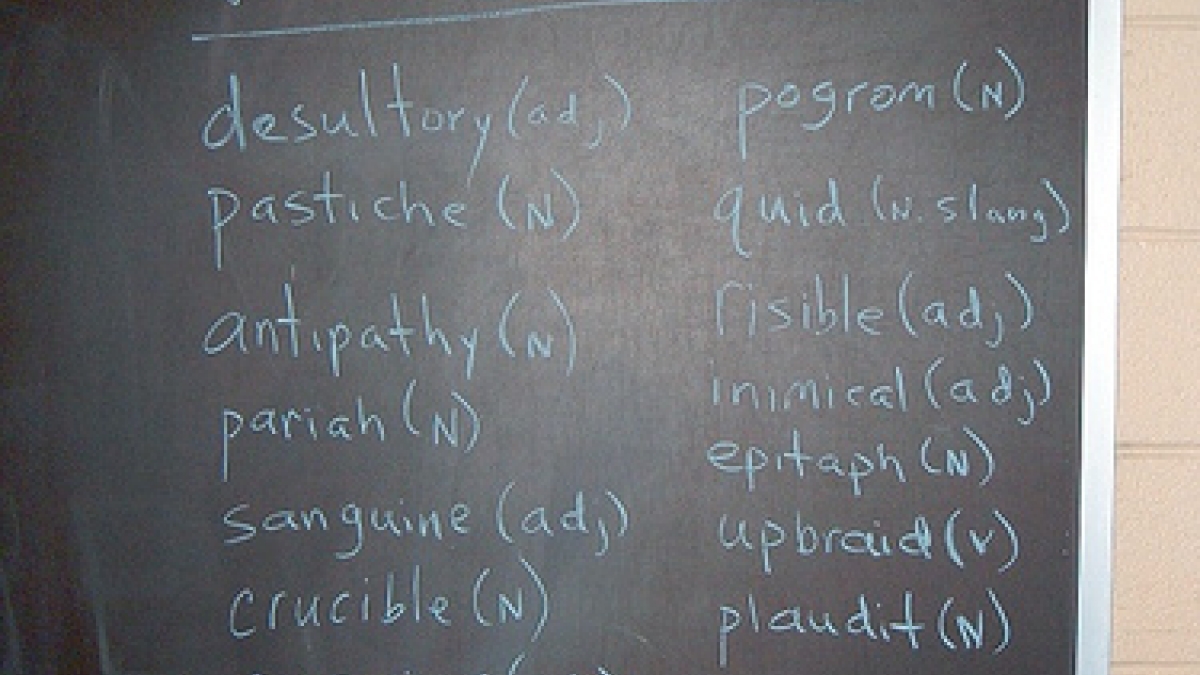 desultory (adj)
pastiche (N)
antipathy (N)
pariah (N)
sanguine (adj)
crucible (N)
pogrom (N)
quid (N. slang)
risible (adj)
inimical (adj)
epitaph (N)
upbraid (v)
plaudit (N)